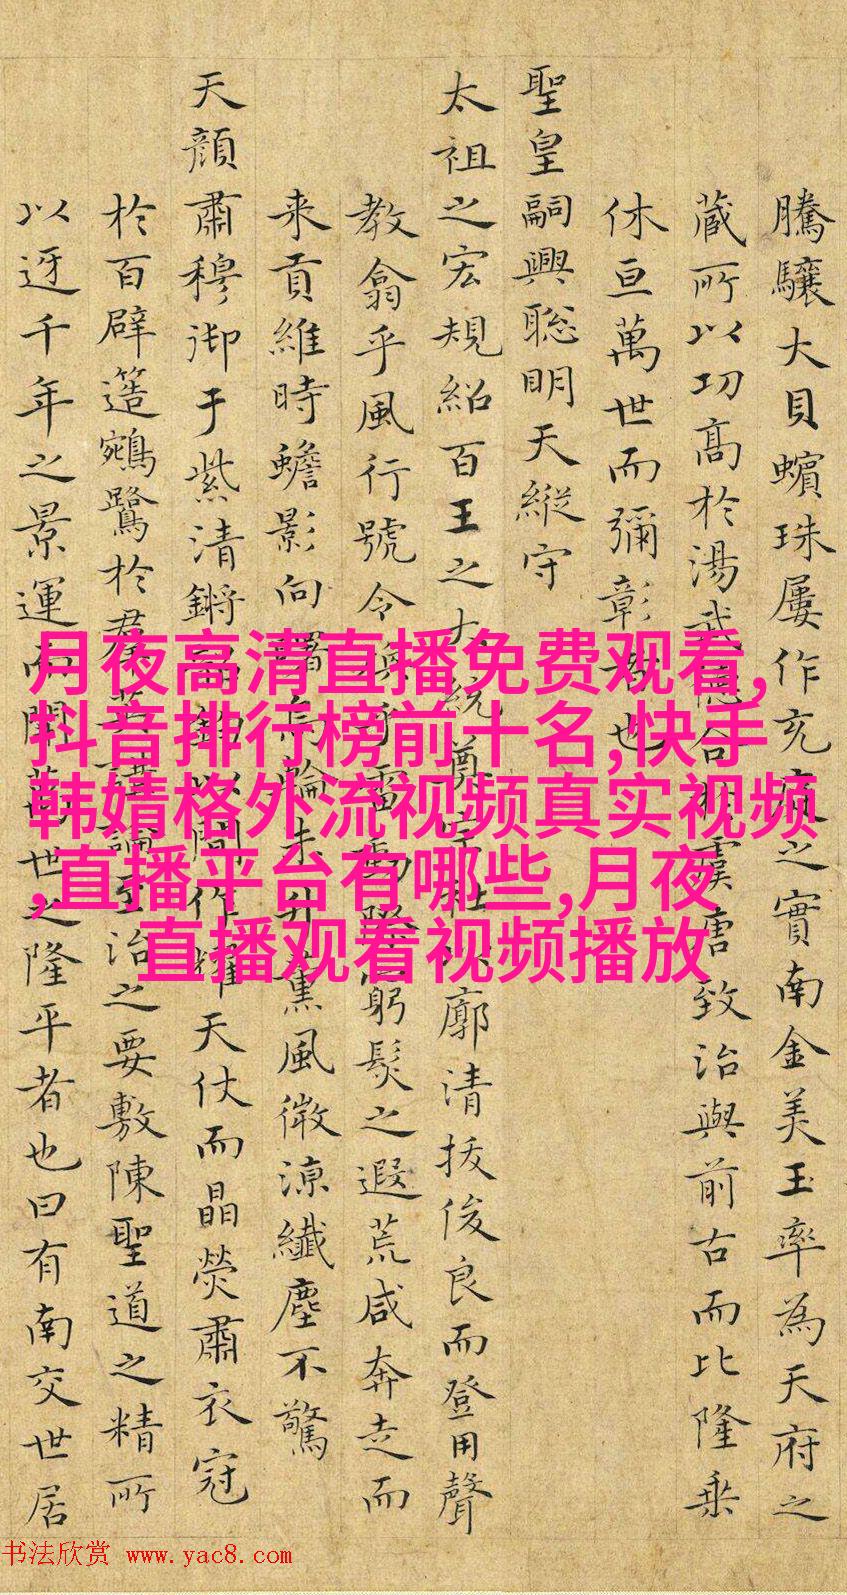 騰驤大貝蠙珠屢作充之實南金美玉率為天府之
藏所以功高於湯武德合於虞唐致治與前古而比隆乗
休亘萬世而彌彰者也
聖皇嗣興聡明天縱守
太祖之宏規紹百王之大統尊廓清抜俊良而登用聲
教翕乎風行號令煥乎雷動際窮髮之遐荒咸奔走而
来貢維時蟾影向曙烏輪未升薫風微涼纎塵不驚
天顏肅穆御于紫清鏘以間作耀天仗而晶熒肅衣冠
於百辟簉鵷鷺於羣英講論至治之要敷陳聖道之精所
以迓千年之景運而開萬世之隆平者也曰有南交世居
月夜高清直播免费观看,
抖音排行榜前十名,快手
韩婧格外流视频真实视频
,直播平台有哪些,月夜
直播观看视频播放
书法欣赏 www.yac8.com